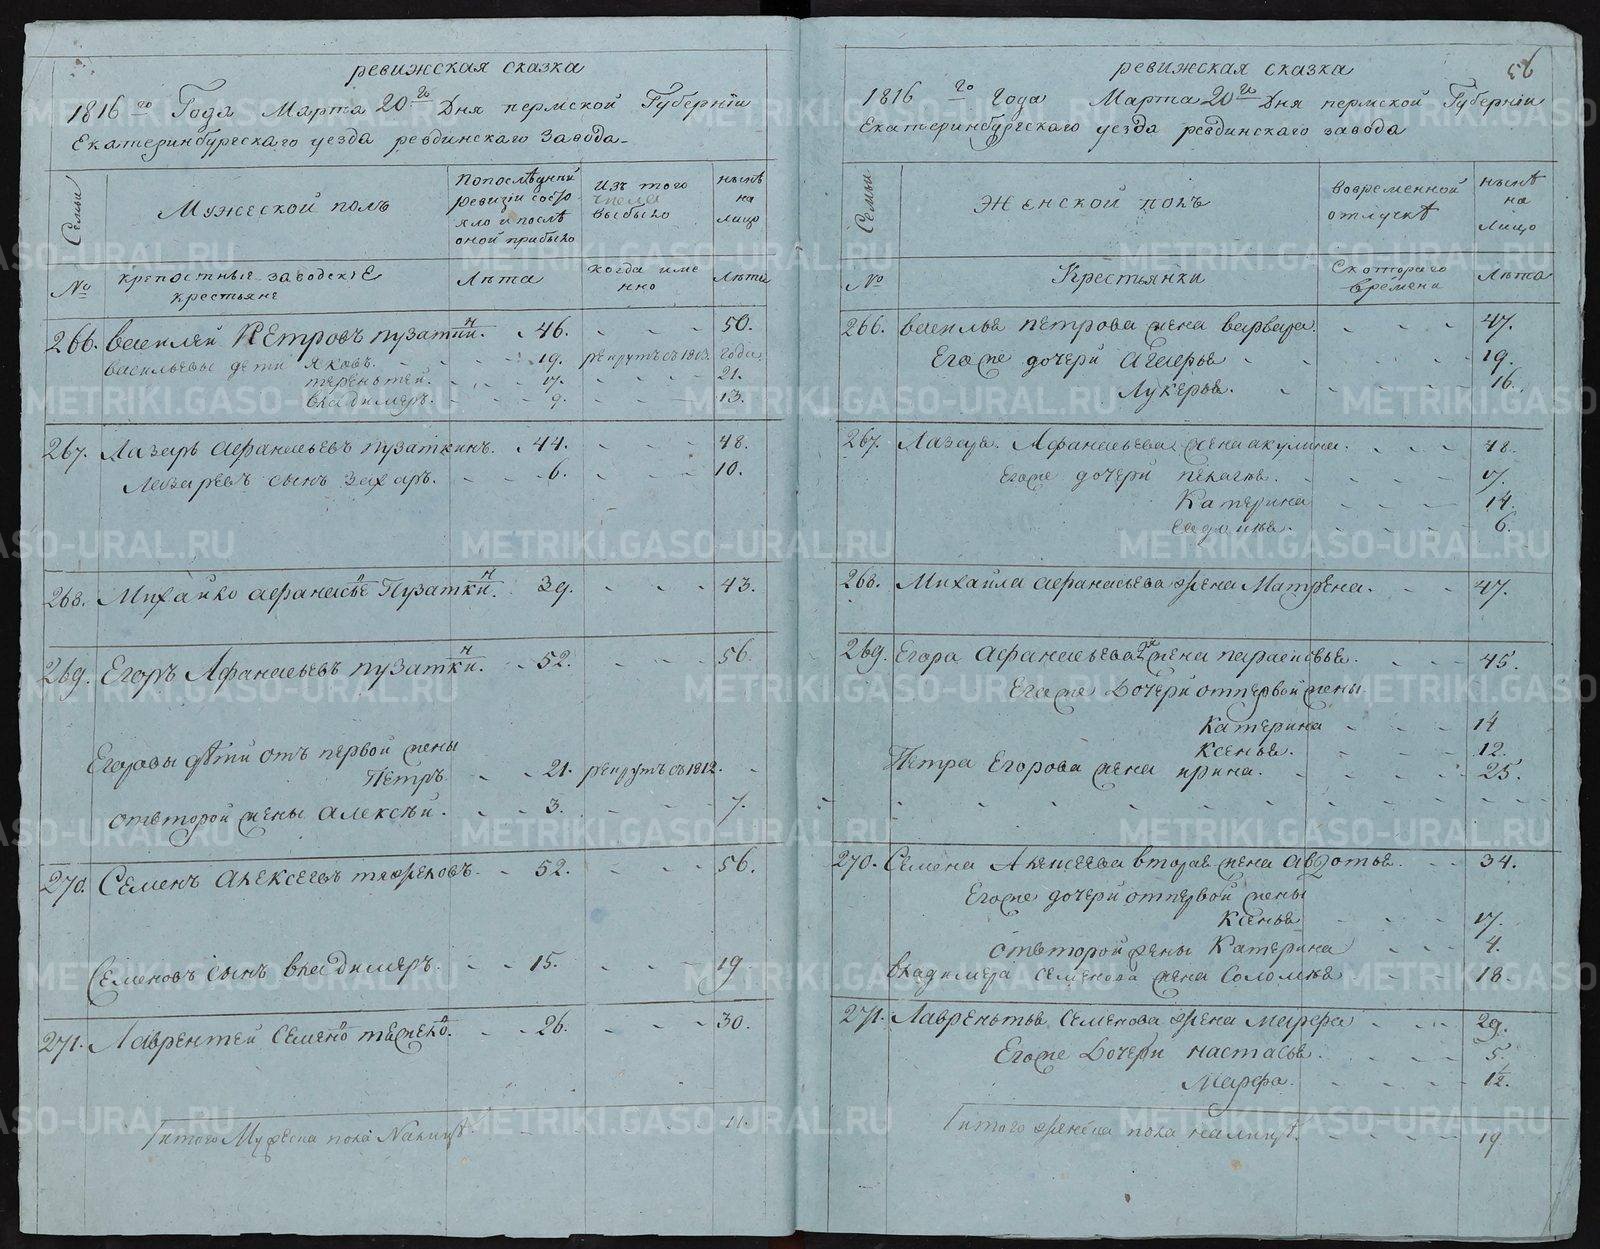 ревижская сказка
1816 го Года Марта 20 го Дня пермской Губернїи
Екатеринбургскаго уезда ревдинскаго Завода
Семьи
Мужеской полъ
Попослѣдней ревизїи состояло и послѣ оной прибыло
Изъ того числа выбыло
нынѣ на лицо
№
крепостные заводскїе крестьяне
Лѣта
когда имено
Лѣта
266. Василей Петровъ пузаткин. 46. 50.
васильевы дети Яковъ. 19. рекрутъ съ 1813 года
терентей. 17. 21.
владимеръ. 9. 13.
267. Лазарь Афанасьевъ пузаткинъ. 44. 48.
Лазаревъ сынъ Захаръ. 6. 10.
268. Михайло Афанасье Пузаткин. 39. 43.
269. Егоръ Афанасьевъ пузаткин. 52. 56.
Егоровы дѣти отъ первой жены
Петръ 21. рекрутъ съ 1812.
отвторой жены Алексѣй. 3. 7.
270. Семенъ Алексеевъ тяжеловъ. 52. 56.
Семеновъ сынъ владимеръ. 15. 19.
271. Лаврентей Семено тяжело. 26. 30.
итого Мужеска пола Налицѣ 11.
56
ревижская сказка
1816 го года Марта 20 го Дня пермской Губернїи
Екатеринбургскаго уезда ревдинскаго завода
Семьи
Женской полъ
Вовременной отлучкѣ
нынѣ на лицо
№
Крестьянки
Скотораго времени
Лѣта
266. василья петрова жена варвара. 47.
Егоже дочери 19.
Лукерья. 16.
267. Лазаря Афанасьева жена акулина. 48.
Егоже дочери пелагея. 17.
Катерина 14.
6.
268. Михайла афанасьева жена Матрена. 47.
269. Егора Афанасьева 2я жена парасковья. 45.
Егоже Дочери отпервой жены
Катерина 14
Ксенья. 12.
Петра Егорова жена ирина. 25.
270. Семена Алексеева вторая жена Авдотья. 34.
Егоже дочери отпервой жены
Ксенья 17.
отвторой жены Катерина 4.
владимера семенова жена Соломия 18.
271. Лаврентья Семенова жена Марфа 29.
Егоже Дочери настасья. 5.
Марфа. 1/2.
итого женска пола налицѣ. 19
METRIKI.GASO-URAL.RU